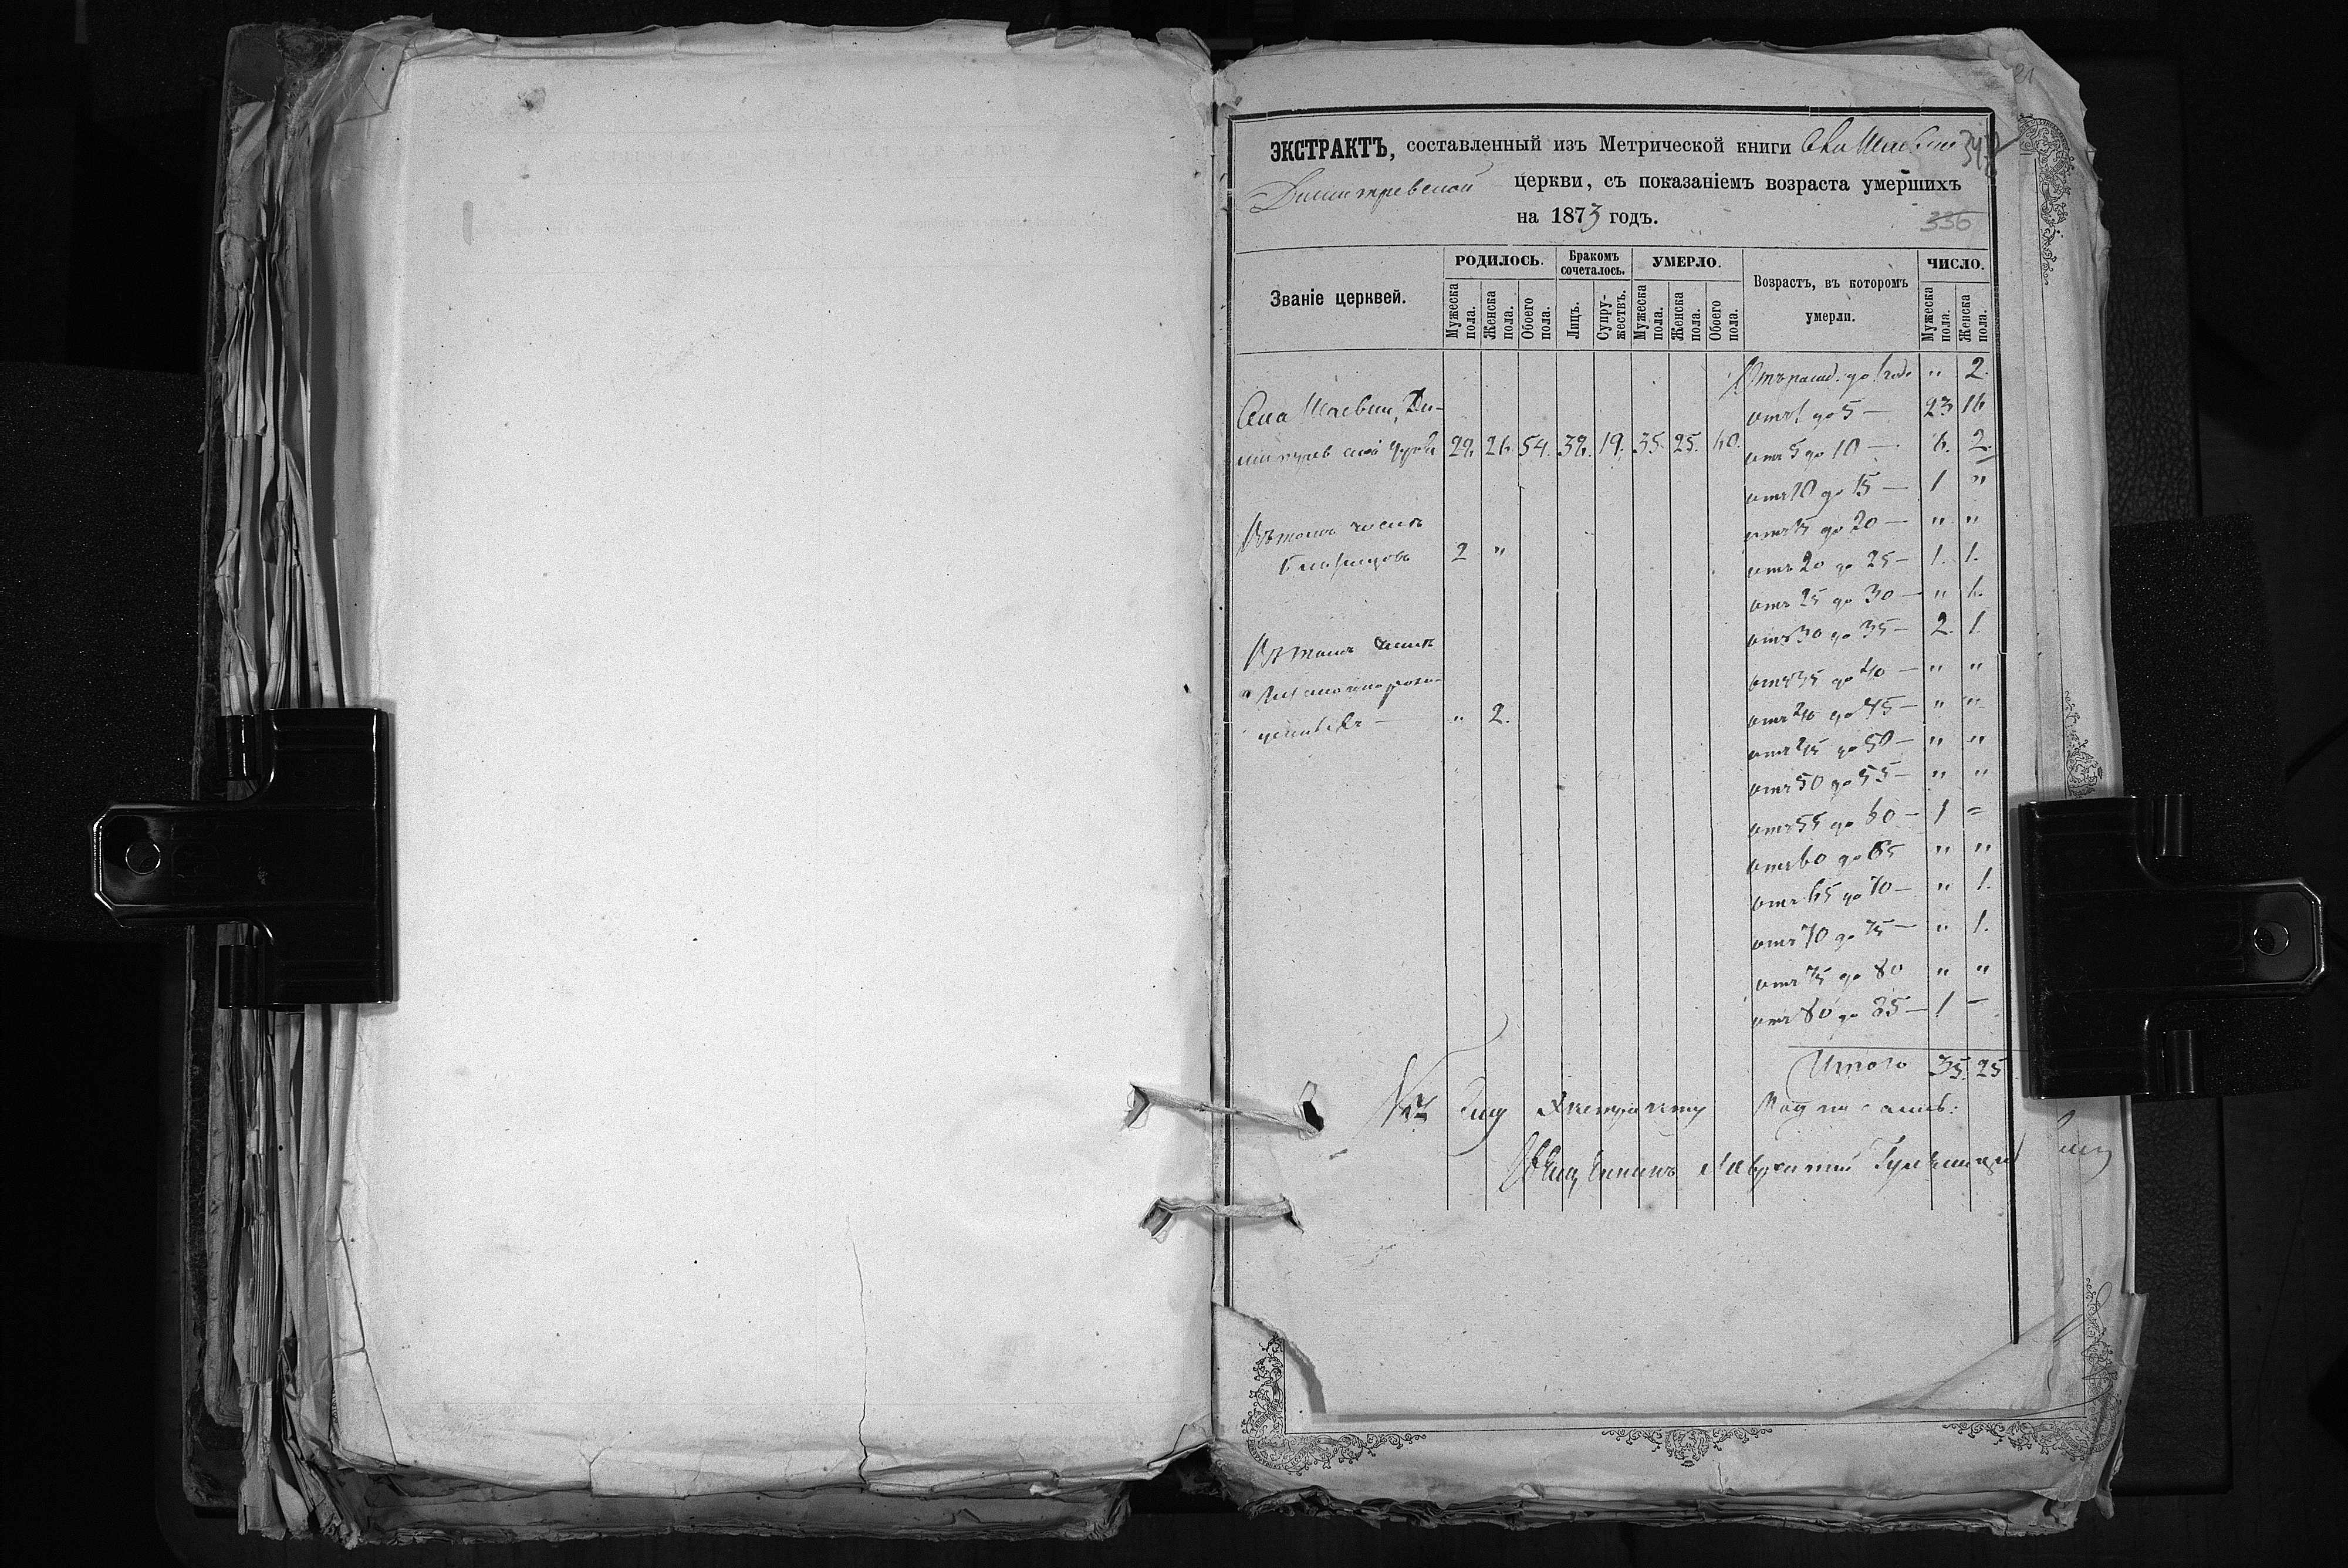 21
ЭКСТРАКТЪ, составленный изъ Метрической книги села Шаевки 347
Димитревской церкви, съ показаніемъ возраста умершихъ
на 1873 годъ.
336
Званіе церквей.
РОДИЛОСЬ.
Мужеска пола.
Женска пола.
Обоего пола.
Бракомъ сочеталось.
Лицъ.
Супружествъ.
УМЕРЛО.
Мужеска пола.
Женска пола.
Обоего пола.
Возрастъ, въ которомъ
умерли.
ЧИСЛО.
Мужеска пола.
Женска пола.
до 1 год. " 2.
Ди-
отъ 1 до 5 — 23 16
28 26 54. 38. 19. 35 25. 60.
отъ 5 до 10 — 6. 2.
отъ 10 до 15 — 1 "
Въ томъ числѣ
отъ 15 до 20 — " "
близнецовъ 2 "
отъ 20 до 25 — 1. 1.
отъ 25 до 30 — " 1.
Въ томъ числѣ
отъ 30 до 35 — 2. 1.
отъ 35 до 40 — " "
— " 2.
отъ 40 до 45 — " "
отъ 45 до 50 — " "
отъ 50 до 55 — " "
отъ 55 до 60 — 1 "
отъ 60 до 65 " "
отъ 65 до 70 — " 1.
отъ 70 до 75 — " 1.
отъ 75 до 80 " "
отъ 80 до 85 — 1 —
Итого 35. 25
Къ сему Экстракту подписались:
Священникъ Лаврентій